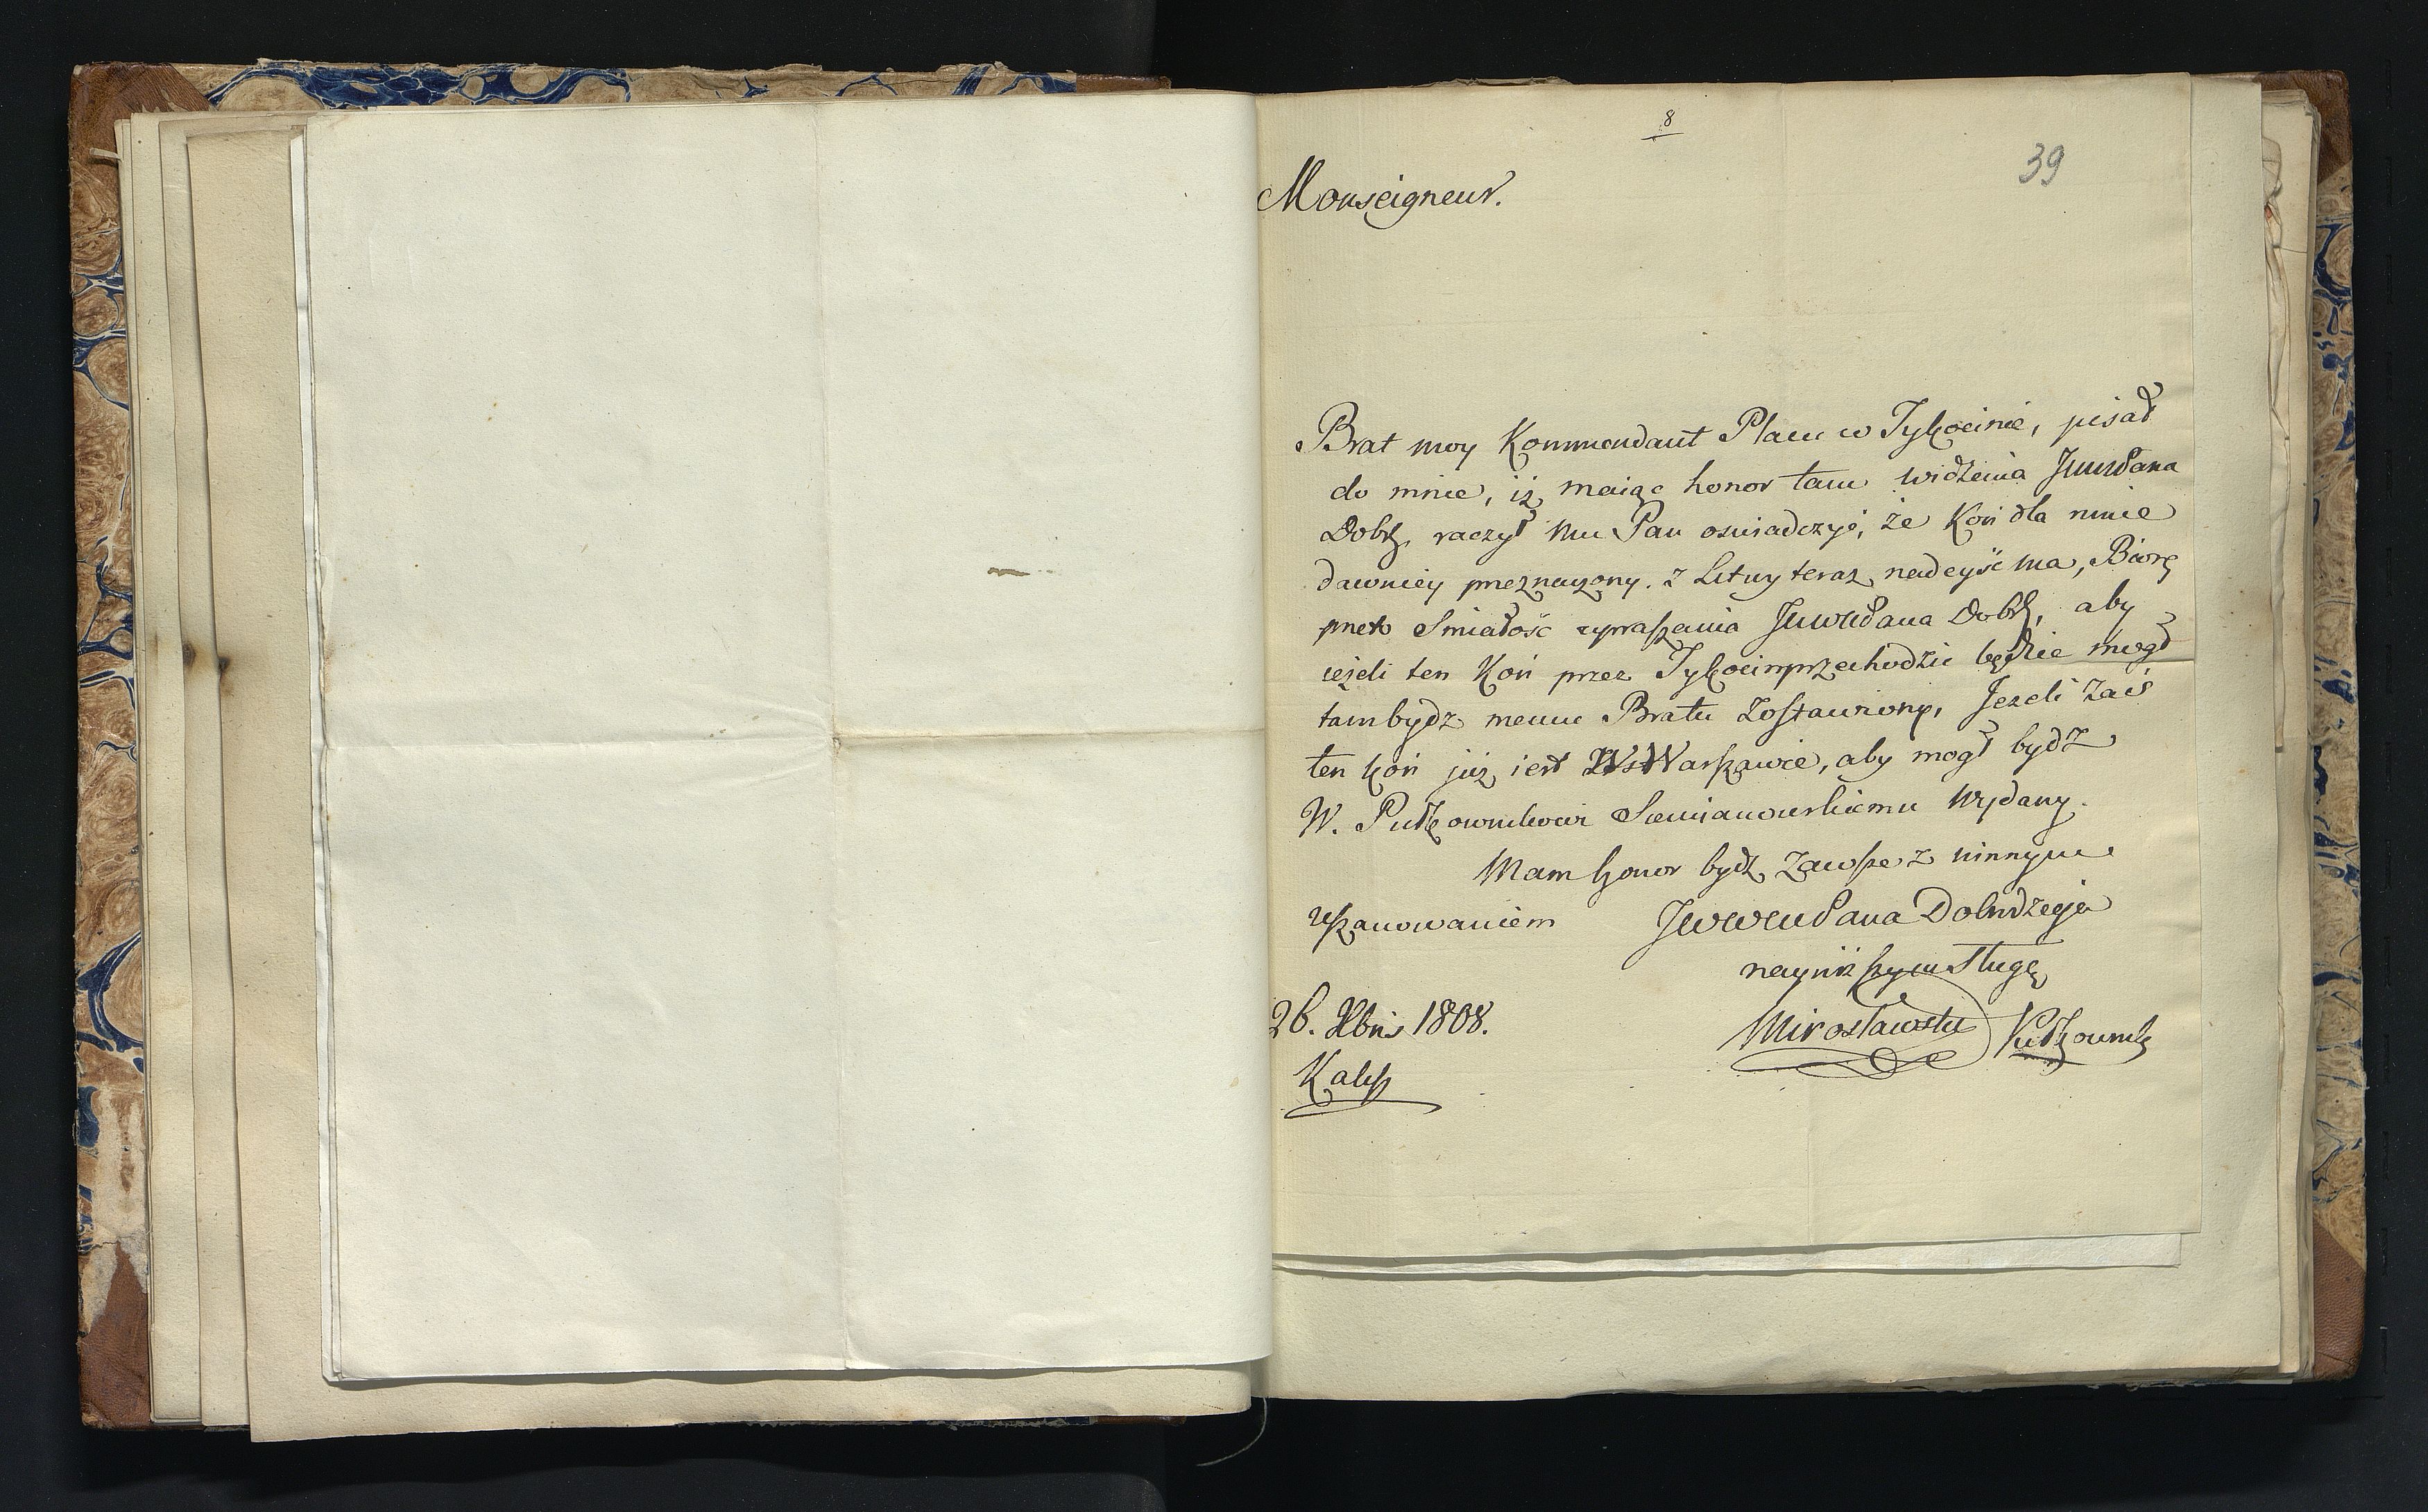 8
39
Monseigneur.
Brat moy Kommendant Placu w Tykocinie, pisał
do mnie, iż maiąc honor tam widzenia JWWPana
Dobr. raczył mu Pan oswiadczyć, że Koń dla mnie
dawniey przeznaczony z Litwy teraz nadeyść ma, Biorę
przeto Smiałość upraszania JWWPana Dobr, aby
ieżeli ten Koń przez Tykocin przechodzić będzie mogł
tam bydz memu Bratu Zostawiony, Jezeli Zaś
ten koń już iest W Warszawie, aby mogł bydz
W. Pułkownikowi Siemianowskiemu Wydany.
Mam honor bydz Zawsze z winnym
uszanowaniem JWWPana Dobrodzieja
nayniższym Sługą
26. Xbris 1808. Mirosławski Pułkownik
Kalisz